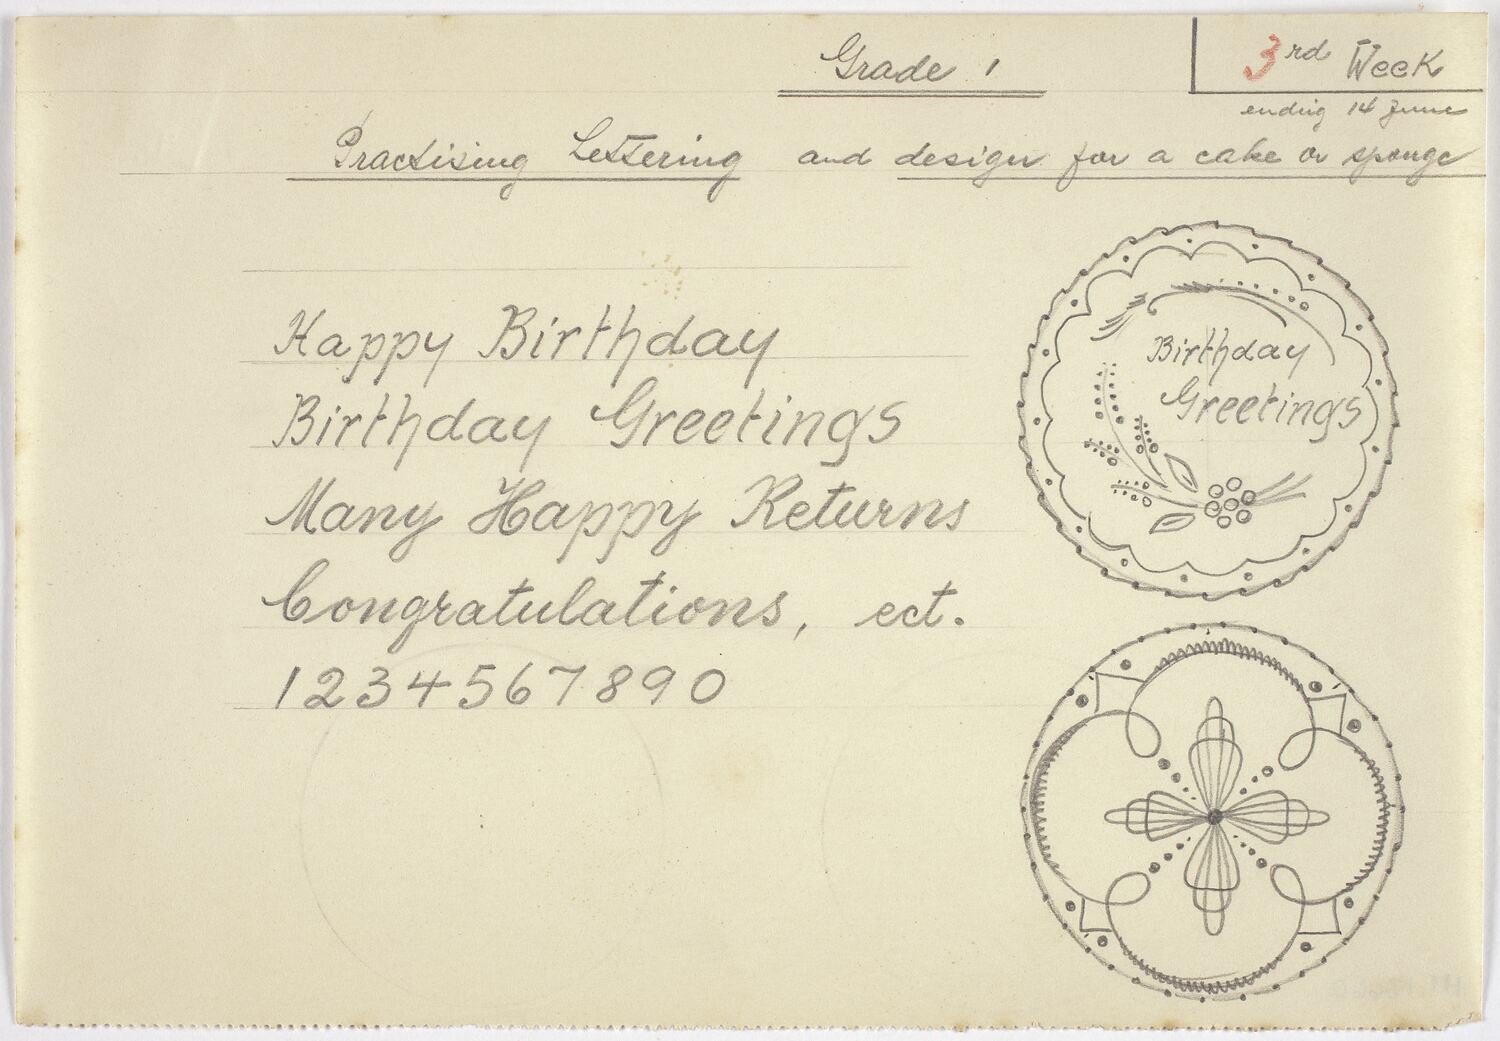 Grade 1
3rd Week
ending 14 June
Practising Lettering and design for a cake or sponge
Happy Birthday
Birthday Greetings
Many Happy Returns
Congratulations, ect.
1234567890
Birthday
Greetings